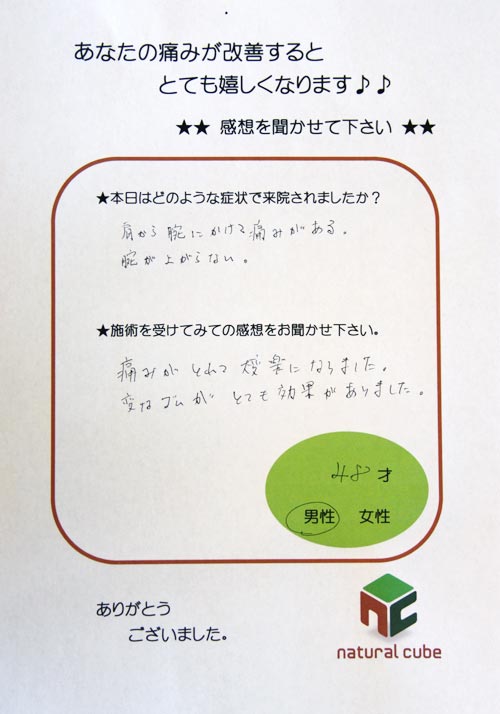 あなたの痛みが改善すると
とても嬉しくなります♪♪
★★ 感想を聞かせて下さい ★★
★本日はどのような症状で来院されましたか?
肩から腕にかけて痛みがある。
腕が上がらない。
★施術を受けてみての感想をお聞かせ下さい。
痛みがとれて大変楽になりました。
変なゴムがとても効果がありました。
48 才
男性 女性
ありがとう
ございました。
nc
natural cube